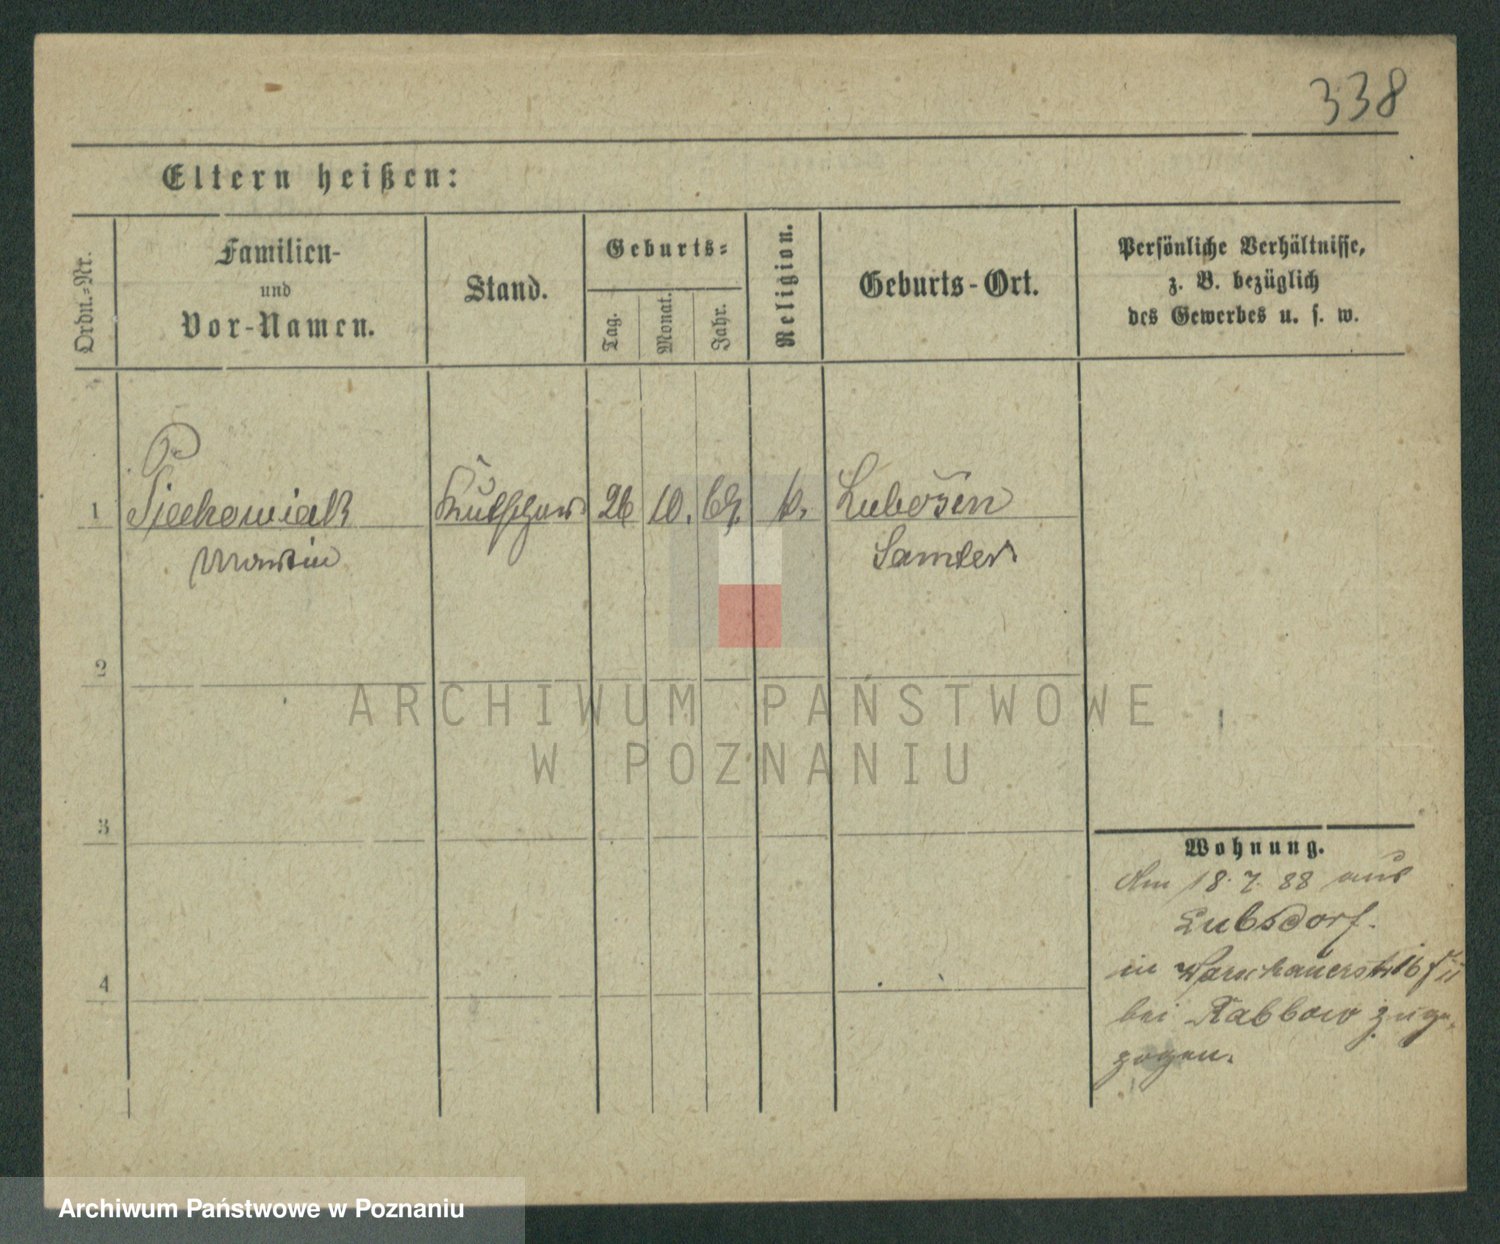 338
Eltern heißen:
Ordn.-Nr.
Familien-
und
Vor-Namen.
Stand.
Geburts-
Tag.
Monat.
Jahr.
Religion.
Geburts-Ort.
Persönliche Verhältnisse,
z. B. bezüglich
des Gewerbes u. s. w.
1 Piechowiak Kutscher 26 10. 69. k. Lubosin
Martin Samter
2
ARCHIWUM PAŃSTWOWE
W POZNANIU
3
4
Wohnung.
Am 18. 7. 88 aus
Lubsdorf.
in Warschauerstr 16
bei Rabbow zuge-
zogen.
Archiwum Państwowe w Poznaniu